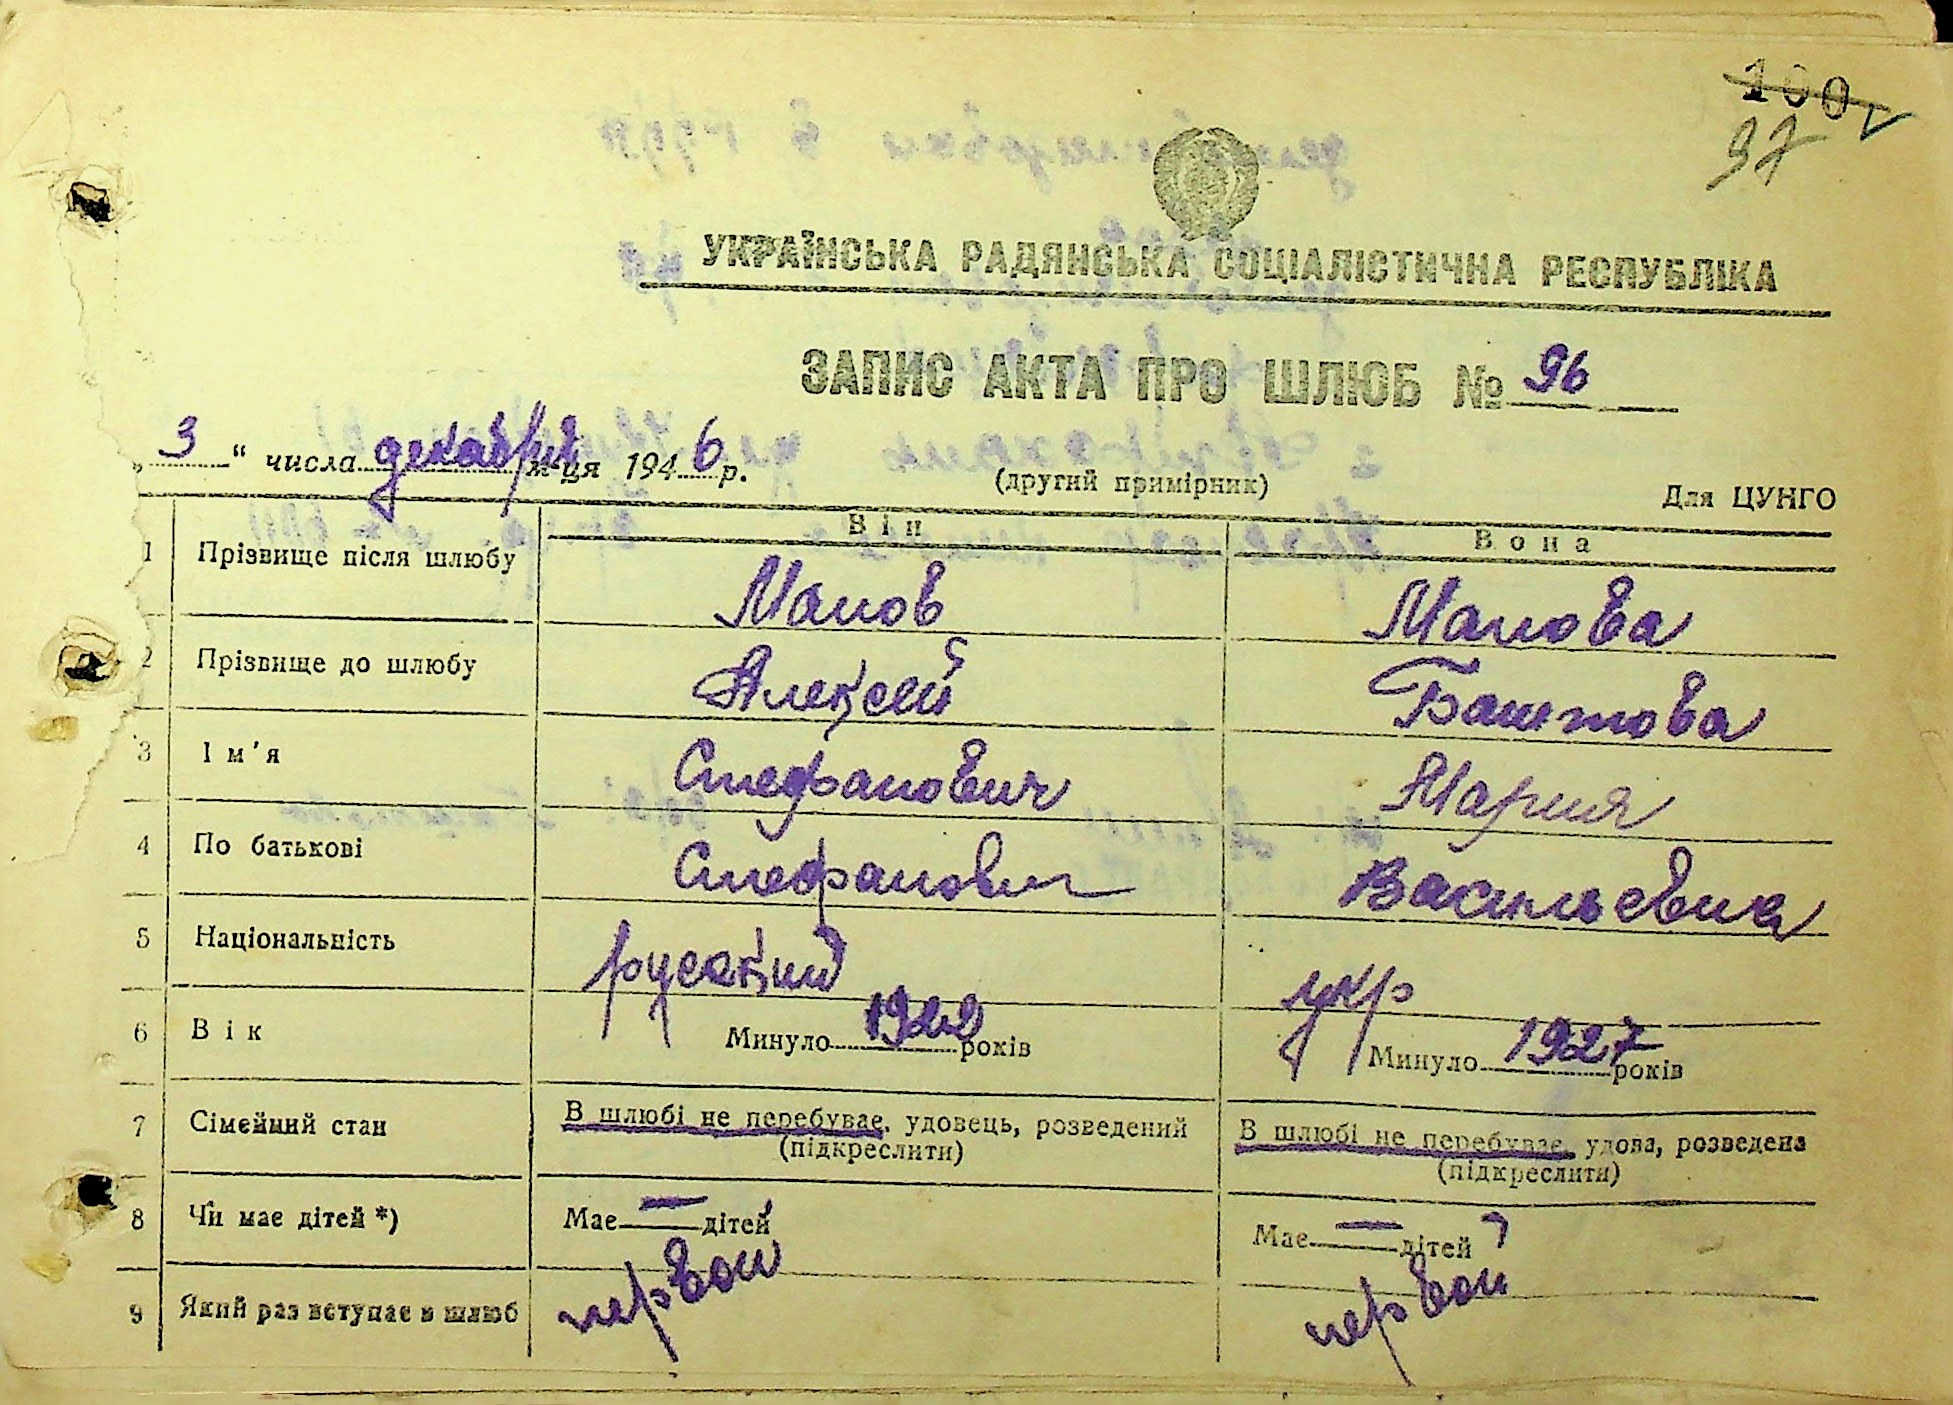 100
97
УКРАЇНСЬКА РАДЯНСЬКА СОЦІАЛІСТИЧНА РЕСПУБЛІКА
ЗАПИС АКТА ПРО ШЛЮБ № 96
„ 3 “ числа декабря м-ця 1946 р.
(другий примірник)
Для ЦУНГО
Він Вона
1 Прізвище після шлюбу Манов Манова
2 Прізвище до шлюбу Алексей Баштова
3 Ім'я Стефанович Мария
4 По батькові Стефанович Васильевна
5 Національність русский укр
6 Вік Минуло 1922 років Минуло 1927 років
7 Сімейний стан В шлюбі не перебуває, удовець, розведений В шлюбі не перебуває, удова, розведена
(підкреслити) (підкреслити)
8 Чи має дітей *) Має — дітей Має — дітей
9 Який раз вступає в шлюб первой первой